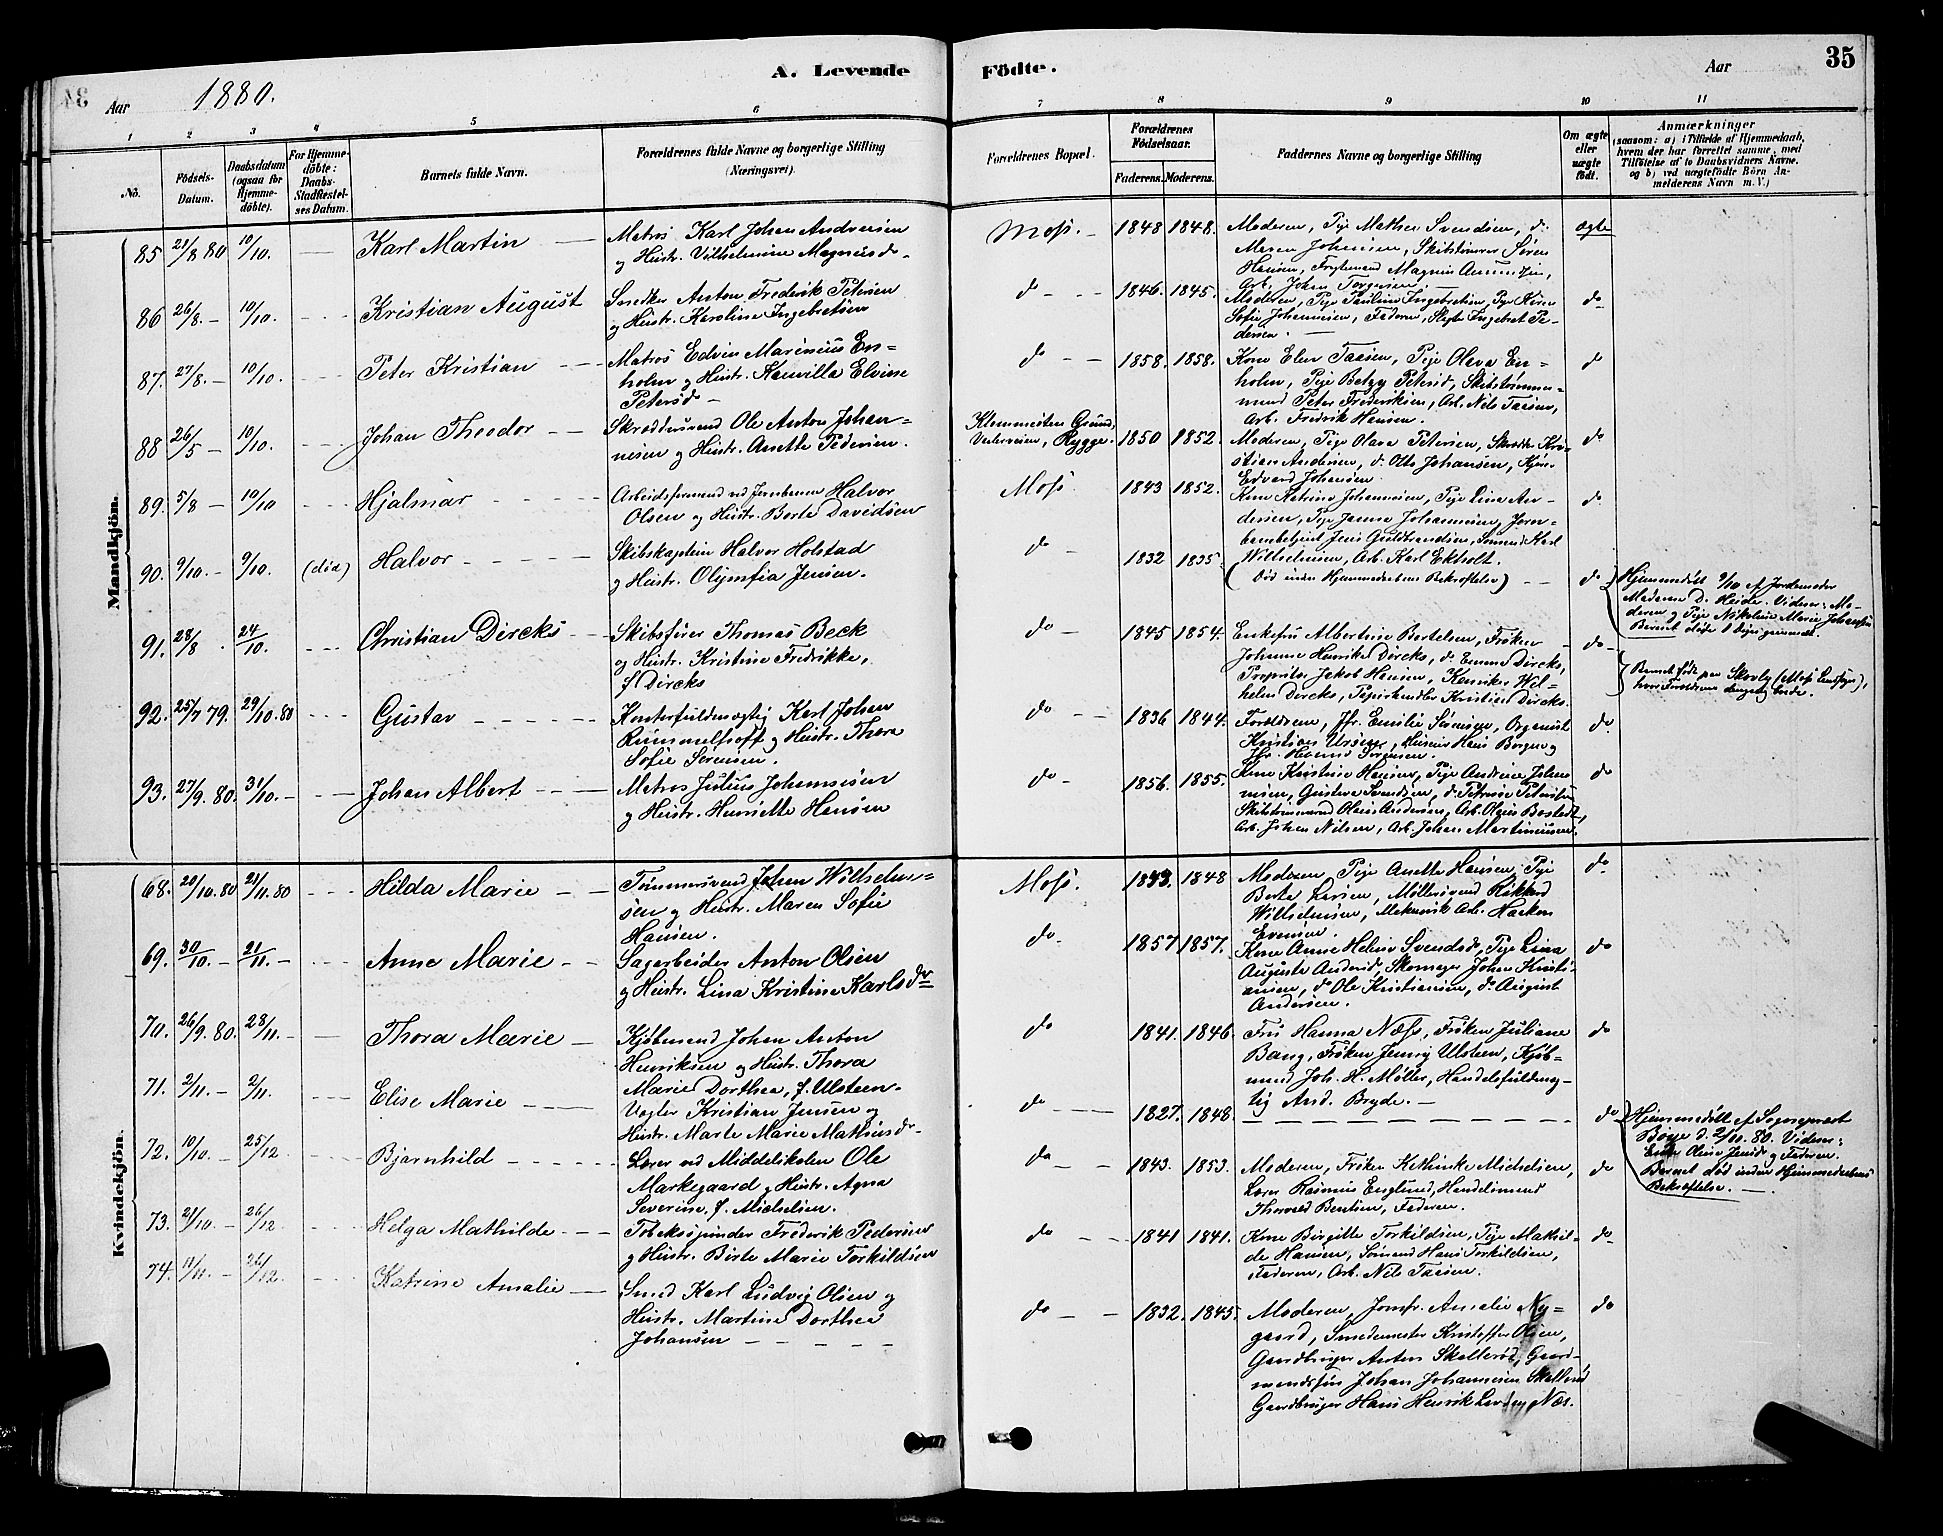 34
Aar 1880.
A. Levende
Födte.
Aar
35
1 2 3 4 5 6 7 8 9 10 11
No.
Födsels-Datum.
Daabsdatum (ogsaa for Hjemme-döbte).
For Hjemme-döbte: Daabs-Stadfæstel-ses Datum.
Barnets fulde Navn.
Forældrenes fulde Navne og borgerlige Stilling (Næringsvei).
Forældrenes Bopæl.
Forældrenes Födselsaar.
Faderens. Moderens.
Faddernes Navne og borgerlige Stilling
Om ægte eller uægte födt.
Anmærkninger
(saasom: a) i Tilfælde af Hjemmedaab,
hvem der har forrettet samme, med
Tilföielse af to Daabsvidners Navne,
og b) ved uægtefödte Börn An-
melderens Navn m. V.)
Mandkjön.
85 21/8 80 10/10. Karl Martin
Matros Karl Johan Andersen
og Hustr. Vilhelmine Magnusd.
Moss. 1848 1848.
Moderen, Pige Mathea Svendsen, do
Maren Johansen, Skibstømrer Søren
Hansen, Fragtemand Magnus Amundsen,
Arb. Johan Torgersen.
ægte
86 26/8. 10/10. Kristian August
Snedker Anton Frederik Petersen
og Hustr. Karoline Ingebretsen
do 1846. 1845.
Moderen, Pige Pauline Ingebretsen, Pige Karen
Sofie Johannesen, Faderen, Slagter Ingebret Pe-
dersen.
do
87. 27/8. 10/10. Peter Kristian
Matros Edvin Marinius En-
holm og Hustr. Kamilla Elvine
Petersd
do 1858. 1858.
Kone Elen Taasen, Pige Olava En-
holm, Pige Betzy Petersd, Skibstømmer-
mand Peter Frederiksen, Arb. Nils Taasen,
Arb. Fredrik Hansen.
do
88 26/5 10/10. Johan Theodor
Skræddersvend Ole Anton Johan-
nesen og Hustr. Anette Pedersen.
Klemmesten Grund,
Vaterveien, Rygge. 1850 1852.
Moderen, Pige Olava Petersen, Skrædder Kri-
stian Andersen, do Otto Johansen,
Edvard Johansen.
do
89. 5/8 10/10 Hjalmar
Arbeidsformand ved Jernbanen Halvor
Olsen og Hustr. Berte Davidsen
Moss. 1843 1852.
Kone Katrine Johannesen, Pige Lina An-
dersen, Pige Janna Johannesen, Jern-
banebetjent Jens Guldbrandsen, Sømand Karl
Wilhelmsen, Arb. Karl Ekholt.
do
90. 9/10. 9/10. (død) Halvor
Skibskaptein Halvor Holstad
og Hustr. Olymfia Jensen.
do 1832 1835.
(Død inden Hjemmedaabens Bekræftelse)
do
Hjemmedøbt 9/10 af Jordemoder
Madame D. Heide. Vidner: Mo-
deren og Pige Nikoline Marie Johansen
Barnet døde 1 Dage gammelt.
91. 28/8. 24/10. Christian Dircks
Skibsfører Thomas Beck
og Hustr. Kristine Fredrikke,
f. Dircks
do 1845 1854.
Enkefru Albertine Bertelsen, Frøken
Johanne Henrikke Dircks, do Emma Dircks,
Proprietær Jakob Hansen, Kemiker Wil-
helm Dircks, Papirhandler Kristian Dircks.
do
Barnet født paa Skovly (Moss Landsogn),
hvor Forældrene dengang boede.
92. 25/7 79. 29/10. 80 Gustav
Kontorfuldmægtig Karl Johan
Rummelhoff og Hustr. Thora
Sofie Sørensen.
do 1836 1844.
Forældrene, Jfr. Emilie Sørensen, Organist
Kristian Ursin, Huseier Hans Borgen og
Jfr. Hanna Sørensen.
do
93. 27/9. 80. 31/10. Johan Albert
Matros Julius Johannesen
og Hustr. Henriette Hansen
do 1856. 1855.
Kone Kristine Hansen, Pige Andrine Johan-
nesen, Gustava Svendsen, do Petrine Petersen,
Skibstømmermand Olaus Andersen, Arb. Olaus Bastad,
Arb. Johan Nilsen, Arb. Johan Martinussen.
do
Kvindekjön.
68. 20/10. 80 21/11. 80 Hilda Marie
Tømmersvend Johan Wilhelm-
sen og Hustr. Maren Sofie
Hansen.
Moss. 1843. 1848
Moderen, Pige Anette Hansen, Pige
Berte Larsen, Møllersvend Rikkard
Wilhelmsen, Mekanisk Arb. Haaken
Evensen.
do
69. 30/10. 21/11. Anna Marie
Sagarbeider Anton Olsen
og Hustr. Lina Kristine Karlsdr
do 1857 1857.
Kone Anne Helene Svendsd, Pige Lina
Auguste Andersd, Skomager Johan Kristi-
ansen, do Ole Kristiansen, do August
Andersen.
do
70. 26/9. 80. 28/11. Thora Marie
Kjøbmand Johan Anton
Henriksen og Hustr. Thora
Marie Dorthea, f. Ulsteen.
do 1841. 1846.
Fru Hanna Næss, Frøken Juliane
Bang, Frøken Jenny Ulsteen, Kjøb-
mand Joh. H. Møller, Handelsfuldmæg-
tig And. Bryde.
do
71. 2/11. 2/11. Elise Marie
Vægter Kristian Jensen og
Hustr. Marte Marie Mathisdr
do 1827. 1848.
do
Hjemmedøbt af Sognepræst
Bøye d. 2/11. 80. Vidner:
Enke Oline Jensd og Faderen.
Barnet død inden Hjemmedaabens
Bekræftelse.
72. 10/10. 25/12 Bjarnhild
Lærer ved Middelskolen Ole
Markegaard og Hustr. Agna
Severine, f. Michelsen.
do 1843. 1853.
Moderen, Frøken Kathinka Michelsen,
Lærer Rasmus Englund, Handelsmand
Thorvald Bentsen, Faderen.
do
73. 21/10. 26/12 Helga Mathilde
Tobaksspinder Frederik Pedersen
og Hustr. Birte Marie Torkildsen
do 1841 1841.
Kone Birgitte Torkildsen, Pige Mathil-
de Hansen, Sømand Hans Torkildsen,
Faderen, Arb. Nils Taasen.
do
74. 11/11. 26/12. Katrine Amalie
Smed Karl Ludvig Olsen og
Hustr. Martine Dorthea
Johansen
do 1832. 1845.
Moderen, Jomfr. Amalie Ny-
gaard, Smedemester Kristoffer Olsen,
Gaardbruger Anton Skallerød, Gaard-
mandssøn Johan Johannesen Skallerød
Gaardbruger Hans Henrik Næs.
do